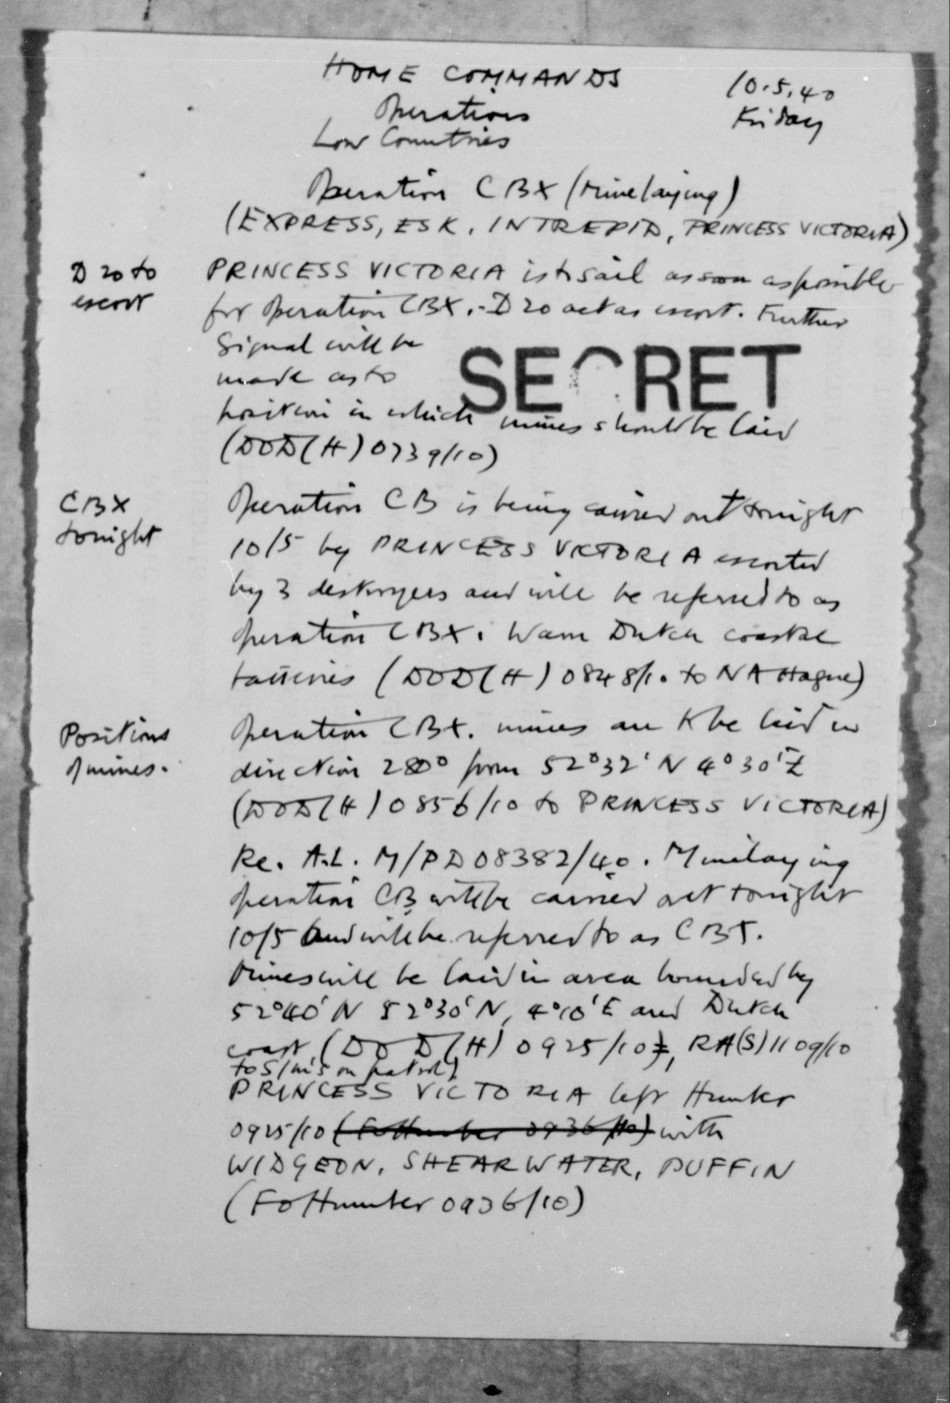 HOME COMMANDS
10.5.40
Operations
Friday
Low Countries
Operation CBX (Minelaying)
(EXPRESS, ESK, INTREPID, PRINCESS VICTORIA)
D 20 to
escort
PRINCESS VICTORIA is to sail as soon as possible
for operation CBX. - D 20 act as escort. Further
Signal will be
made as to
SECRET
position in which mines should be laid
(DOD(H) 0739/10)
CBX
tonight
Operation CB is being carried out tonight
10/5 by PRINCESS VICTORIA escorted
by 3 destroyers and will be referred to as
operation CBX. Warn Dutch coastal
batteries (DOD(H) 0848/10 to NA Hague)
Positions
of mines.
Operation CBX. mines are to be laid in
direction 280° from 52°32'N 4°30'E
(DOD(H) 0856/10 to PRINCESS VICTORIA)
Re. A.L. M/PD 08382/40. Minelaying
operation CB will be carried out tonight
10/5 and will be referred to as CBX.
Mines will be laid in area bounded by
52°40'N 52°30'N, 4°10'E and Dutch
coast (DOD(H) 0925/10), RA(S) 1109/10
to S/m's on patrol)
PRINCESS VICTORIA left Humber
0925/10 (FoHumber 0936/10) with
WIDGEON, SHEARWATER, PUFFIN
(FoHumber 0936/10)